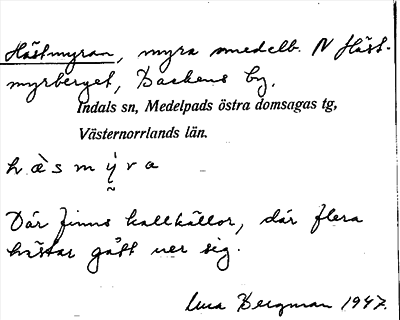 Hästmyran, myra omedelb. N Häst-
myrberget, Backens by.
Indals sn, Medelpads östra domsagas tg,
Västernorrlands län.
hæ̀smỳra
Där finns kallkällor, där flera
hästar gått ner sig.
Bergman 1947.